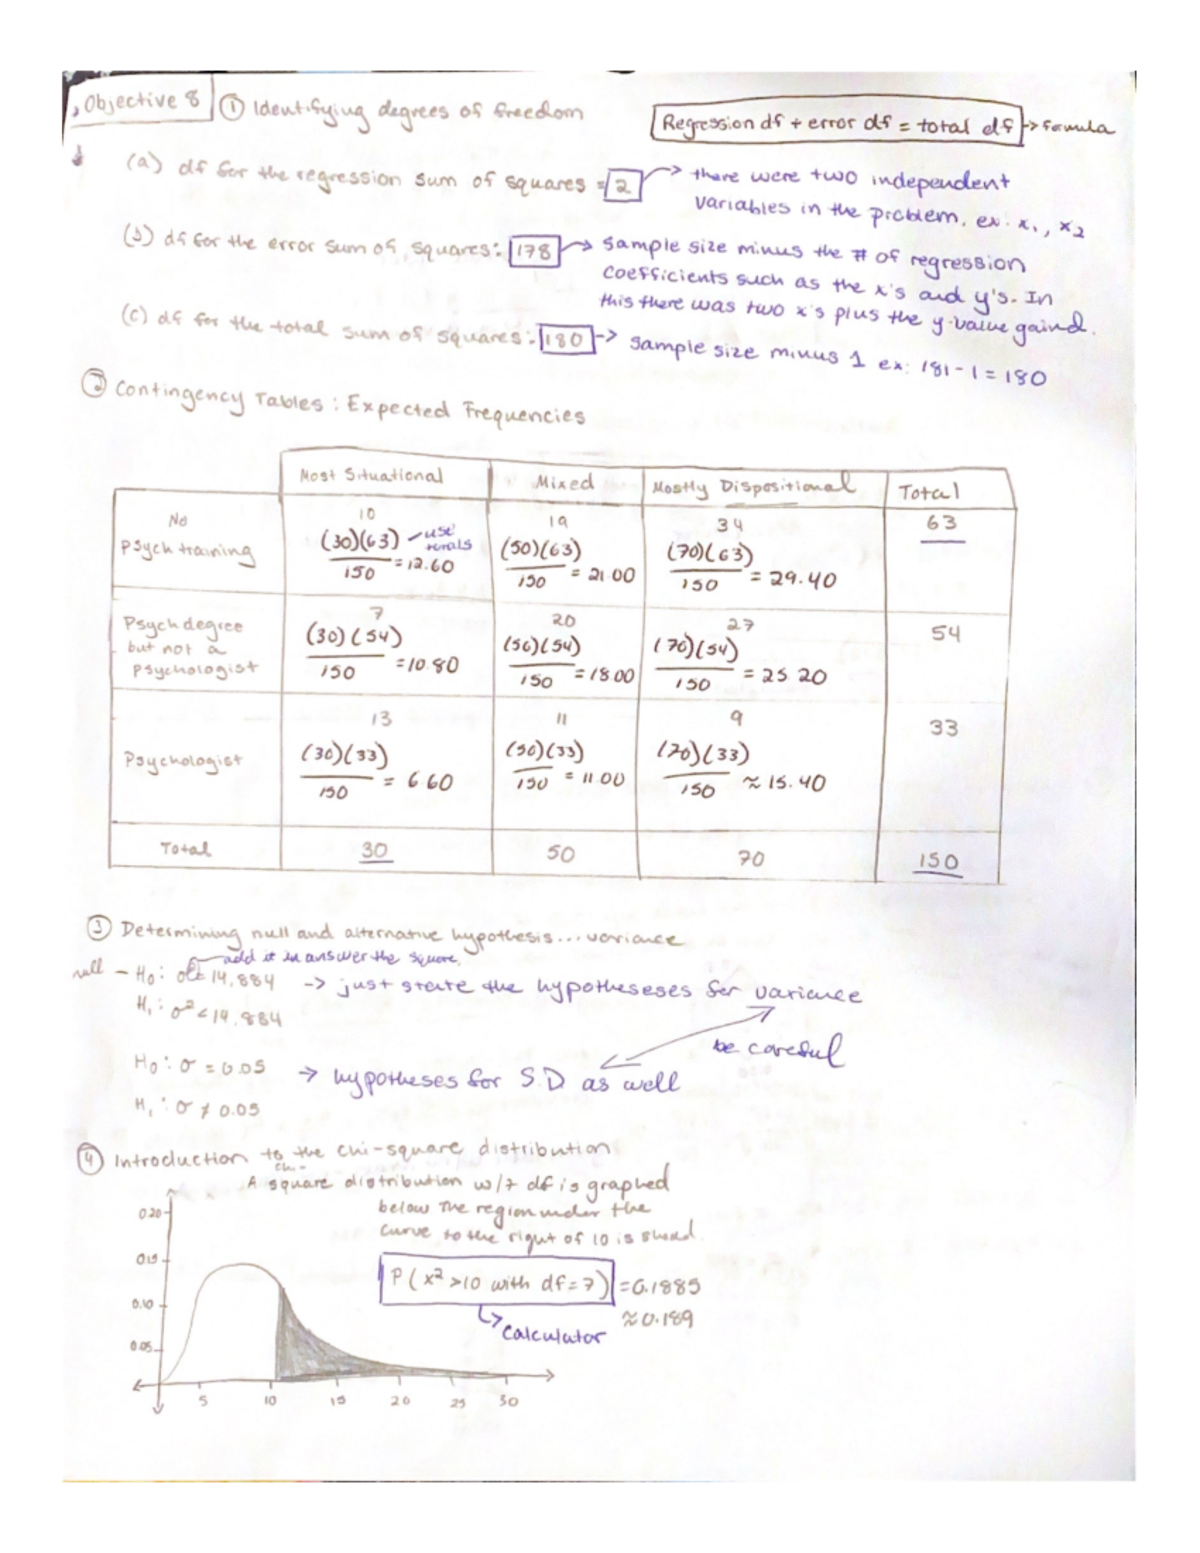 Objective 8 ① Identifying degrees of freedom
Regression df + error df = total df → formula
(a) df for the regression sum of squares = 2 → there were two independent
variables in the problem. ex: x₁, x₂
(b) df for the error sum of squares: 178 → sample size minus the # of regression
coefficients such as the x's and y's. In
this there was two x's plus the y-value gaind.
(c) df for the total sum of squares: 180 → sample size minus 1 ex: 181-1=180
② Contingency Tables: Expected Frequencies
Most Situational Mixed Mostly Dispositional Total
No
Psych training
10
(30)(63)/150 = 12.60
use
totals
19
(50)(63)/150 = 21.00
34
(70)(63)/150 = 29.40
63
Psych degree
but not a
psychologist
7
(30)(54)/150 = 10.80
20
(50)(54)/150 = 18.00
27
(70)(54)/150 = 25 20
54
Psychologist
13
(30)(33)/150 = 6 60
11
(50)(33)/150 = 11.00
9
(70)(33)/150 ≈ 15.40
33
Total 30 50 70 150
③ Determining null and alternative hypothesis... variance
add it in answer the square.
null - H₀: σ²= 14.884 → just state the hypotheseses for variance
H₁: σ² < 14.884
be careful
H₀: σ = 0.05 → hypotheses for S.D as well
H₁: σ ≠ 0.05
④ Introduction to the chi-square distribution
chi-
A square distribution w/7 df is graphed
below the region under the
curve to the right of 10 is shead.
P(x² >10 with df=7) = 0.1885
≈ 0.189
↳ calculator
0.20
0.15
0.10
0.05
5 10 15 20 25 30